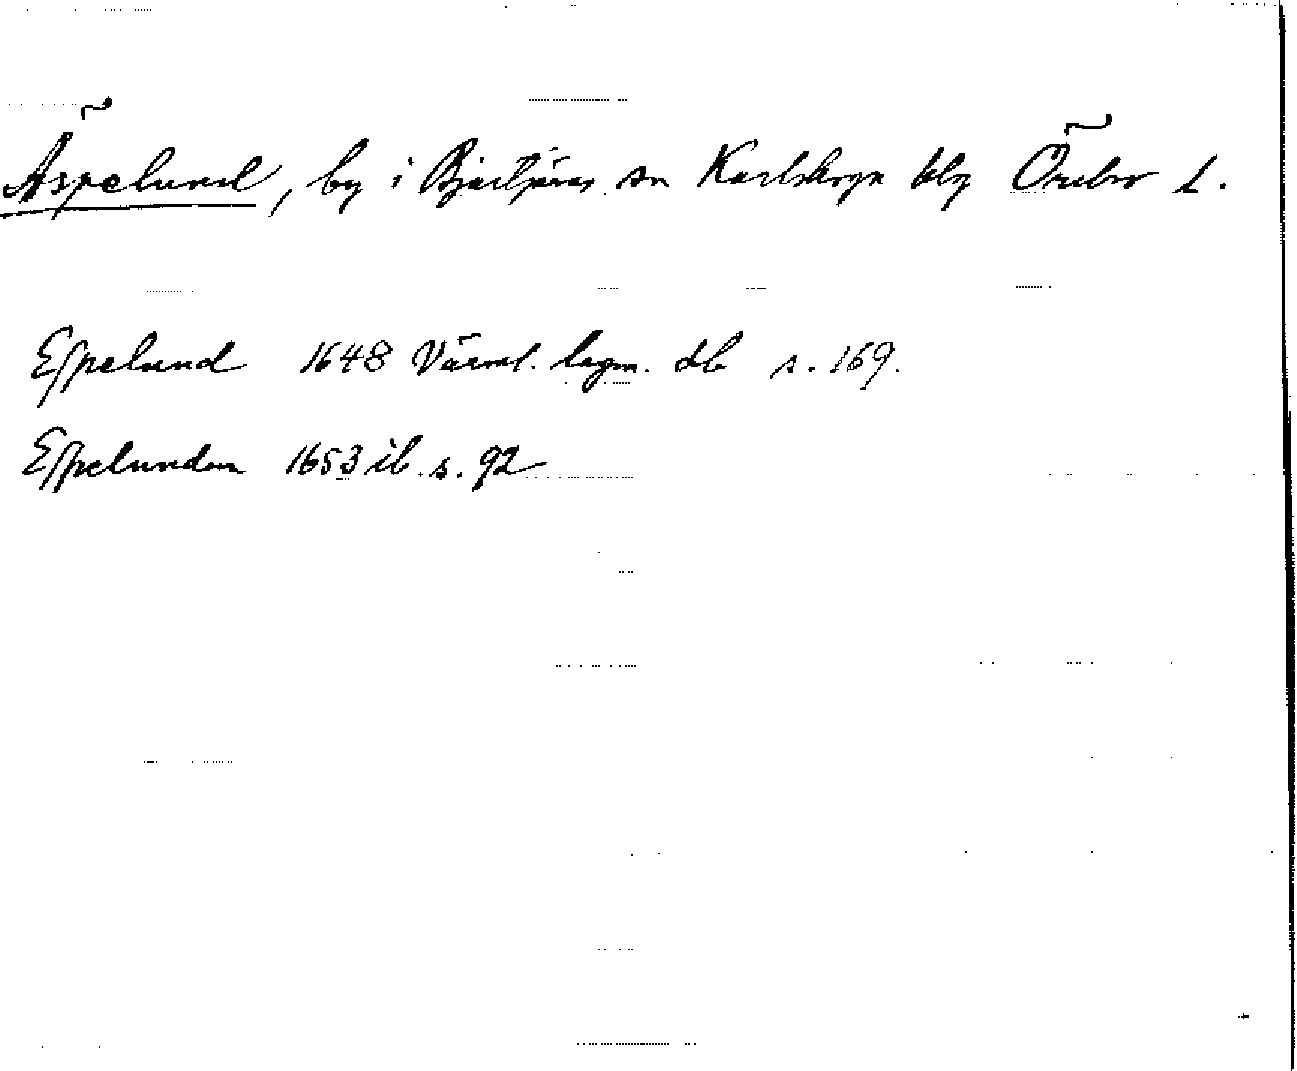 Äspelund, by i Bjurtjärns sn Karlskoga blg Örebro l.
Espelund 1648 Värml. lagm. db s. 169.
Espelunden 1653 ib. s. 92